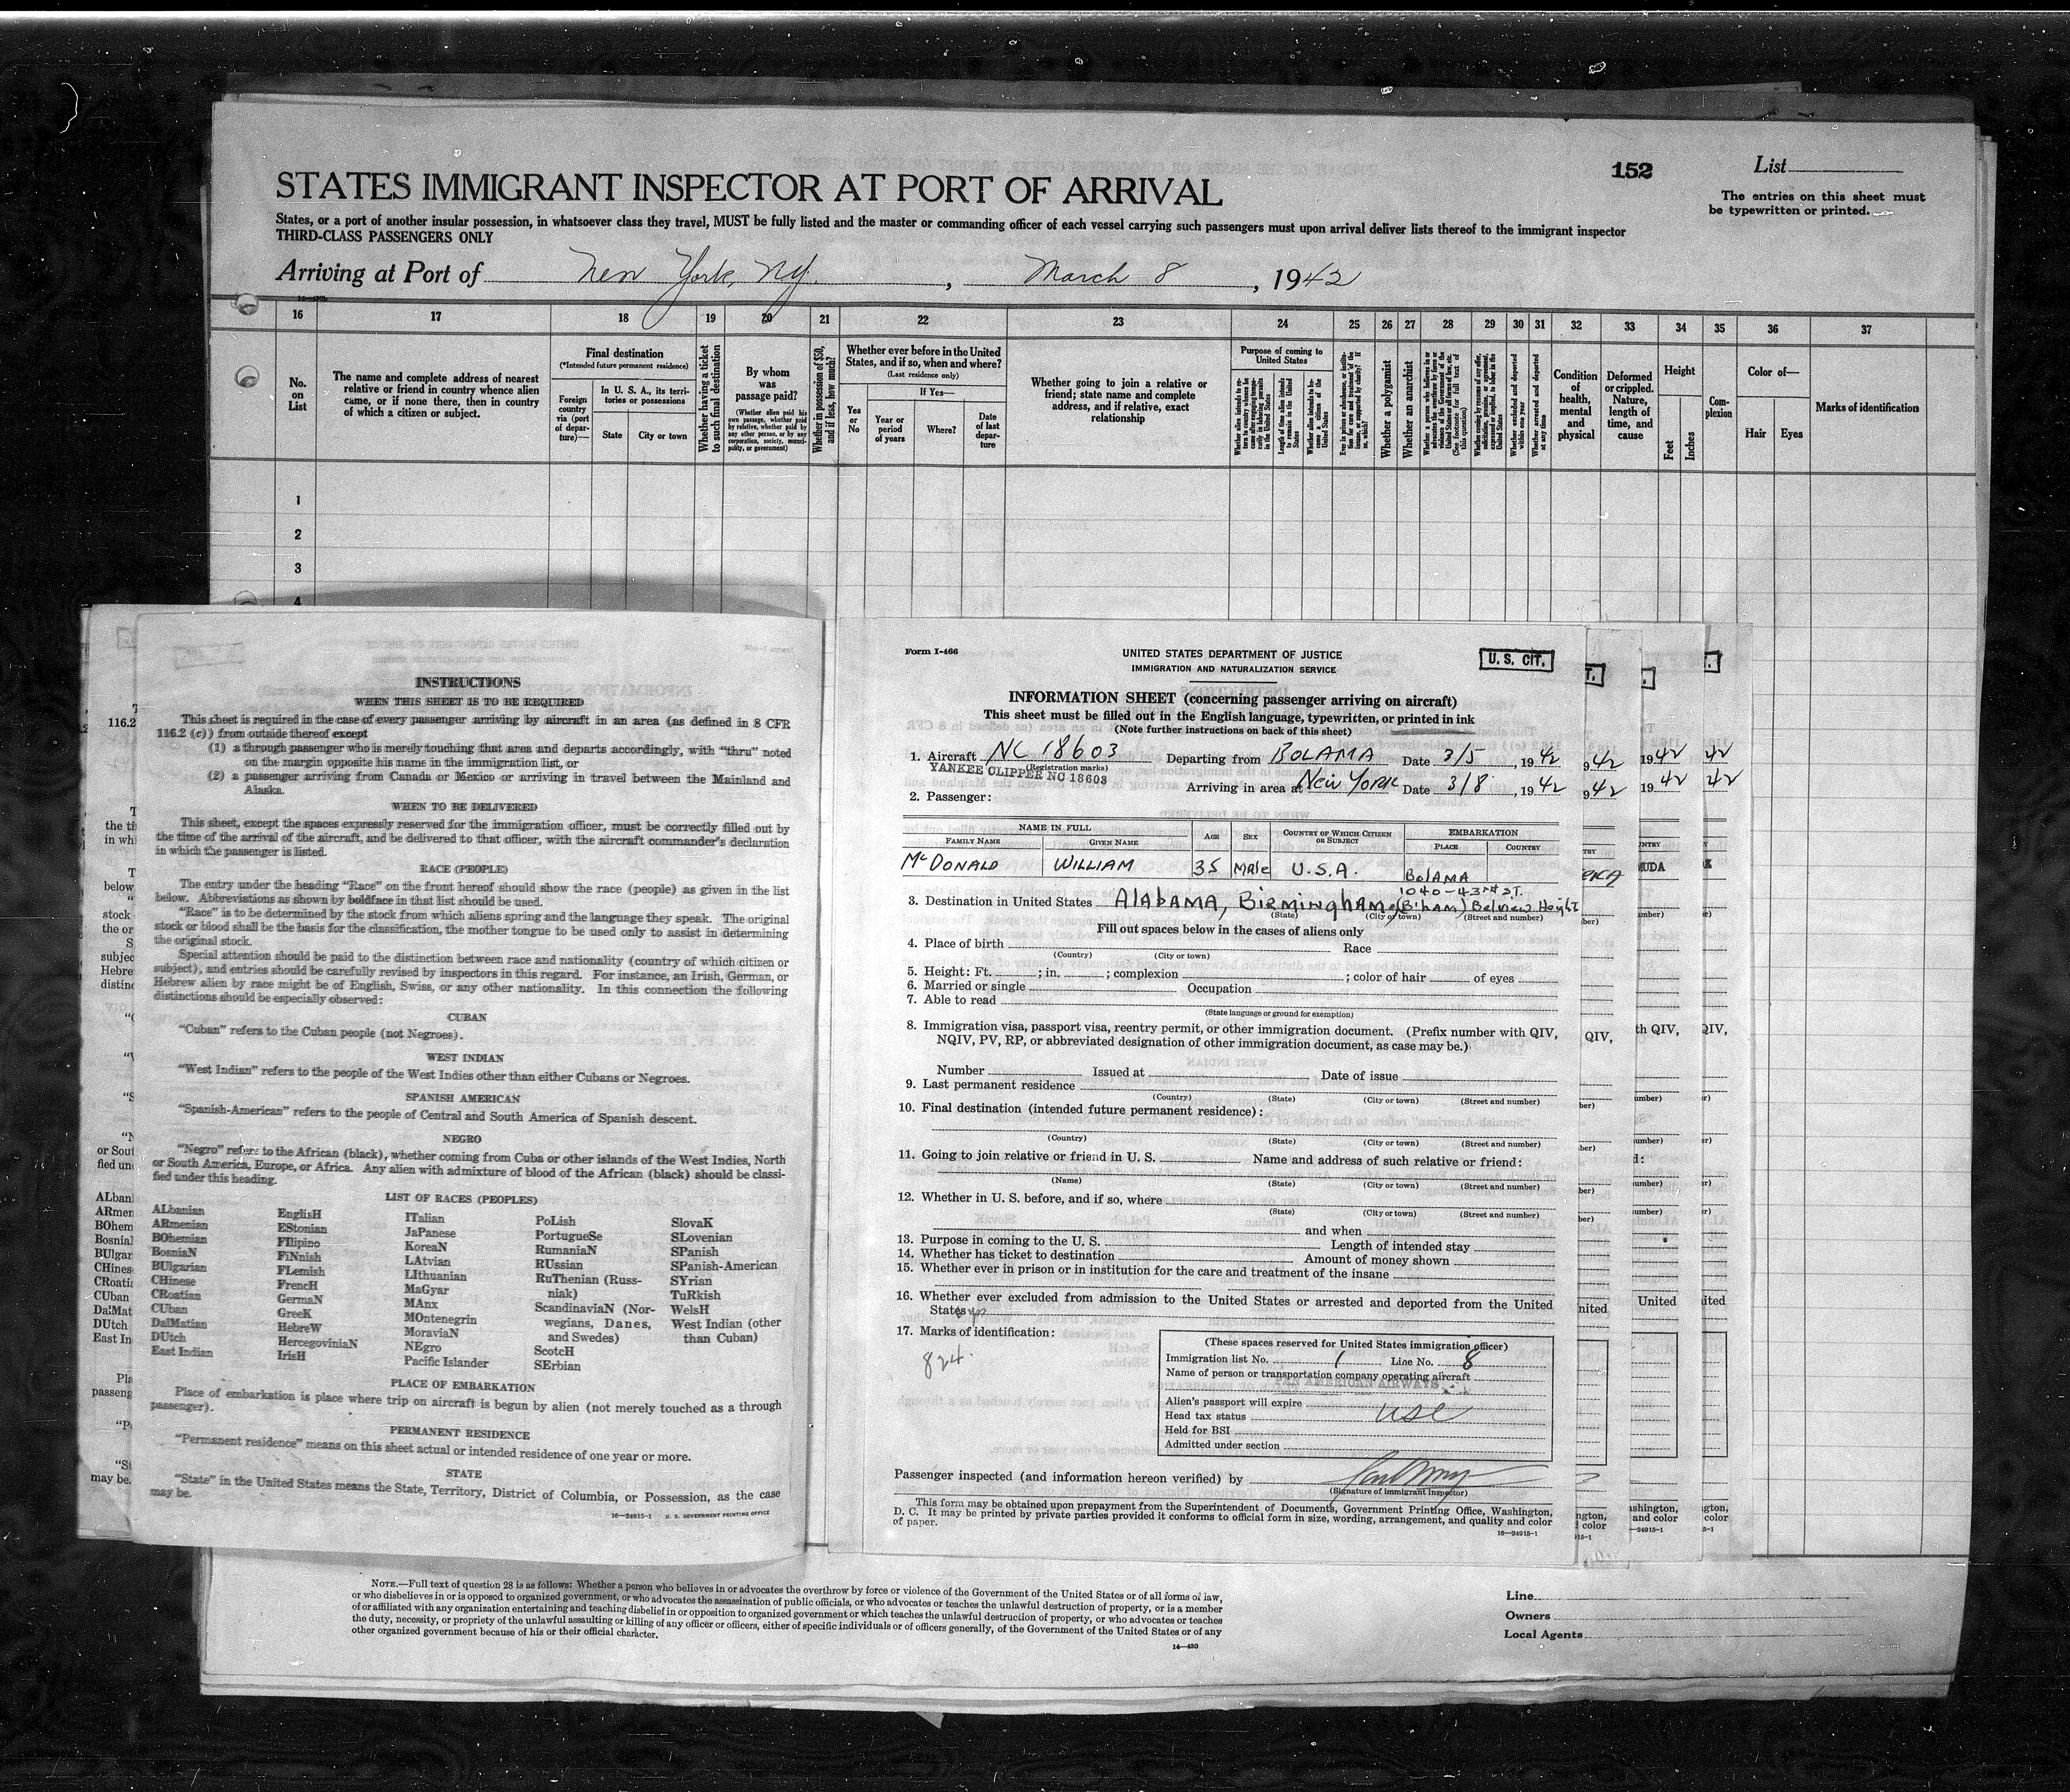 152
List
STATES IMMIGRANT INSPECTOR AT PORT OF ARRIVAL
The entries on this sheet must
be typewritten or printed.
States, or a port of another insular possession, in whatsoever class they travel, MUST be fully listed and the master or commanding officer of each vessel carrying such passengers must upon arrival deliver lists thereof to the immigrant inspector
THIRD-CLASS PASSENGERS ONLY
Arriving at Port of New York, NY. , March 8 , 1942
16 17 18 19 20 21 22 23 24 25 26 27 28 29 30 31 32 33 34 35 36 37
No.
on
List
The name and complete address of nearest
relative or friend in country whence alien
came, or if none there, then in country
of which a citizen or subject.
Final destination
(*Intended future permanent residence)
Foreign
country
via (port
of depar-
ture)—
In U. S. A., its terri-
tories or possessions
State
City or town
Whether having a ticket
to such final destination
By whom
was
passage paid?
(Whether alien paid his
own passage, whether paid
by relative, whether paid by
any other person, or by any
corporation, society, munici-
pality, or government)
Whether in possession of $50,
and if less, how much?
Whether ever before in the United
States, and if so, when and where?
(Last residence only)
Yes
or
No
If Yes—
Year or
period
of years
Where?
Date
of last
depar-
ture
Whether going to join a relative or
friend; state name and complete
address, and if relative, exact
relationship
Purpose of coming to
United States
Length of time alien intends
to remain in the United
States
Whether alien intends to be-
come a citizen of the
United States
Whether a polygamist
Whether an anarchist
Whether arrested and deported
at any time
Condition
of
health,
mental
and
physical
Deformed
or crippled.
Nature,
length of
time, and
cause
Height
Feet
Inches
Com-
plexion
Color of—
Hair
Eyes
Marks of identification
1
2
3
4
INSTRUCTIONS
WHEN THIS SHEET IS TO BE REQUIRED
This sheet is required in the case of every passenger arriving by aircraft in an area (as defined in 8 CFR
116.2 (c)) from outside thereof except
(1) a through passenger who is merely touching that area and departs accordingly, with "thru" noted
on the margin opposite his name in the immigration list, or
(2) a passenger arriving from Canada or Mexico or arriving in travel between the Mainland and
Alaska.
WHEN TO BE DELIVERED
This sheet, except the spaces expressly reserved for the immigration officer, must be correctly filled out by
the time of the arrival of the aircraft, and be delivered to that officer, with the aircraft commander's declaration
in which the passenger is listed.
RACE (PEOPLE)
The entry under the heading "Race" on the front hereof should show the race (people) as given in the list
below. Abbreviations as shown by boldface in that list should be used.
"Race" is to be determined by the stock from which aliens spring and the language they speak. The original
stock or blood shall be the basis for the classification, the mother tongue to be used only to assist in determining
the original stock.
Special attention should be paid to the distinction between race and nationality (country of which citizen or
subject), and entries should be carefully revised by inspectors in this regard. For instance, an Irish, German, or
Hebrew alien by race might be of English, Swiss, or any other nationality. In this connection the following
distinctions should be especially observed:
CUBAN
"Cuban" refers to the Cuban people (not Negroes).
WEST INDIAN
"West Indian" refers to the people of the West Indies other than either Cubans or Negroes.
SPANISH AMERICAN
"Spanish-American" refers to the people of Central and South America of Spanish descent.
NEGRO
"Negro" refers to the African (black), whether coming from Cuba or other islands of the West Indies, North
or South America, Europe, or Africa. Any alien with admixture of blood of the African (black) should be classi-
fied under this heading.
LIST OF RACES (PEOPLES)
ALbanian
ARmenian
BOhemian
BosniaN
BUlgarian
CHinese
CRoatian
CUban
DalMatian
DUtch
East Indian
EnglisH
EStonian
FIlipino
FiNnish
FLemish
FrencH
GermaN
GreeK
HebreW
HercegoviniaN
IrisH
ITalian
JaPanese
KoreaN
LAtvian
LIthuanian
MaGyar
MAnx
MOntenegrin
MoraviaN
NEgro
Pacific Islander
PoLish
PortugueSe
RumaniaN
RUssian
RuThenian (Russ-
niak)
ScandinaviaN (Nor-
wegians, Danes,
and Swedes)
ScotcH
SErbian
SlovaK
SLovenian
SPanish
SPanish-American
SYrian
TuRkish
WelsH
West Indian (other
than Cuban)
PLACE OF EMBARKATION
Place of embarkation is place where trip on aircraft is begun by alien (not merely touched as a through
passenger).
PERMANENT RESIDENCE
"Permanent residence" means on this sheet actual or intended residence of one year or more.
STATE
"State" in the United States means the State, Territory, District of Columbia, or Possession, as the case
may be.
16—24915-1 U. S. GOVERNMENT PRINTING OFFICE
Form I-466
UNITED STATES DEPARTMENT OF JUSTICE
IMMIGRATION AND NATURALIZATION SERVICE
U. S. CIT.
INFORMATION SHEET (concerning passenger arriving on aircraft)
This sheet must be filled out in the English language, typewritten, or printed in ink
(Note further instructions on back of this sheet)
1. Aircraft NC 18603 Departing from BOLAMA Date 3/5, 1942
(Registration marks)
YANKEE CLIPPER NC 18603
Arriving in area at New York Date 3/8, 1942
2. Passenger:
NAME IN FULL
FAMILY NAME
GIVEN NAME
AGE
SEX
COUNTRY OF WHICH CITIZEN
OR SUBJECT
EMBARKATION
PLACE
COUNTRY
McDONALD WILLIAM 35 Male U.S.A. BOLAMA
1040-43rd ST.
3. Destination in United States ALABAMA, Birmingham (B'ham) Belview Height
(State) (City or town) (Street and number)
Fill out spaces below in the cases of aliens only
4. Place of birth Race
(Country) (City or town)
5. Height: Ft. ; in. ; complexion ; color of hair of eyes
6. Married or single Occupation
7. Able to read
(State language or ground for exemption)
8. Immigration visa, passport visa, reentry permit, or other immigration document. (Prefix number with QIV,
NQIV, PV, RP, or abbreviated designation of other immigration document, as case may be.)
Number Issued at Date of issue
9. Last permanent residence
(Country) (State) (City or town) (Street and number)
10. Final destination (intended future permanent residence):
(Country) (State) (City or town) (Street and number)
11. Going to join relative or friend in U. S. Name and address of such relative or friend:
(Name) (State) (City or town) (Street and number)
12. Whether in U. S. before, and if so, where
(State) (City or town) (Street and number)
and when
13. Purpose in coming to the U. S. Length of intended stay
14. Whether has ticket to destination Amount of money shown
15. Whether ever in prison or in institution for the care and treatment of the insane
16. Whether ever excluded from admission to the United States or arrested and deported from the United
States
17. Marks of identification:
824.
(These spaces reserved for United States immigration officer)
Immigration list No. 1 Line No. 8
Name of person or transportation company operating aircraft
PAN AMERICAN AIRWAYS
Alien's passport will expire
Head tax status usc
Held for BSI
Admitted under section
Passenger inspected (and information hereon verified) by
(Signature of immigrant inspector)
This form may be obtained upon prepayment from the Superintendent of Documents, Government Printing Office, Washington,
D. C. It may be printed by private parties provided it conforms to official form in size, wording, arrangement, and quality and color
of paper.
16—24915-1
NOTE.—Full text of question 28 is as follows: Whether a person who believes in or advocates the overthrow by force or violence of the Government of the United States or of all forms of law,
or who disbelieves in or is opposed to organized government, or who advocates the assassination of public officials, or who advocates or teaches the unlawful destruction of property, or is a member
of or affiliated with any organization entertaining and teaching disbelief in or opposition to organized government or which teaches the unlawful destruction of property, or who advocates or teaches
the duty, necessity, or propriety of the unlawful assaulting or killing of any officer or officers, either of specific individuals or of officers generally, of the Government of the United States or of any
other organized government because of his or their official character.
14—430
Line
Owners
Local Agents